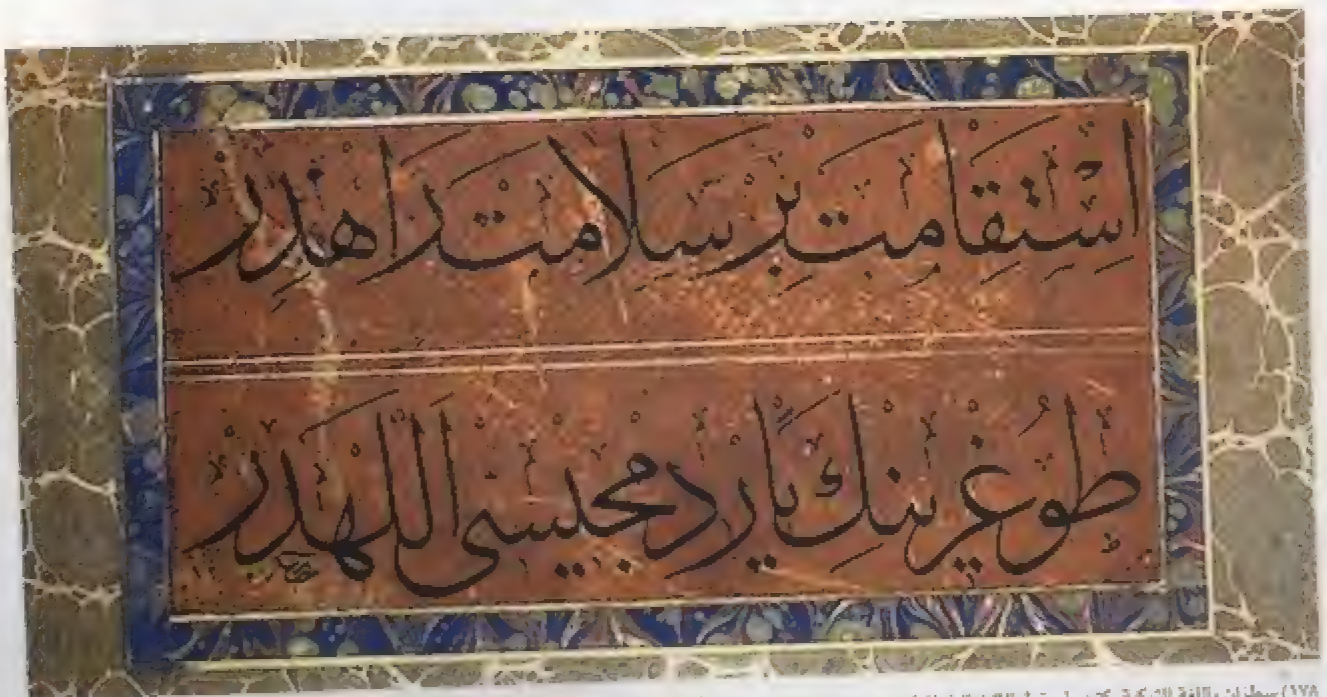 اِسْتِقَامَت بِر سَلَامَت رَاهِدِر
طوُغْرِينِكْ يَارْدِمْجِيسِى اَللّٰهْدِرْ